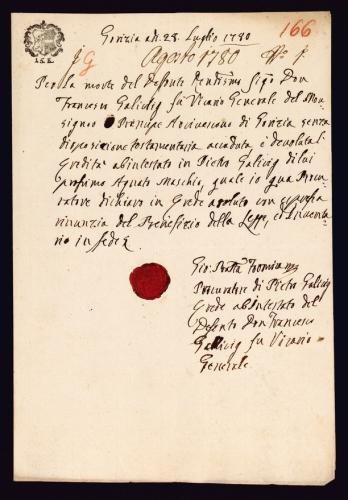 Gorizia adi 28 Luglio 1780
166
G
Agosto 1780
I.S.K.
Per la morte del Defonto Sigr Don
Francesco Gallvig fu Vicario Generale del Mon
signor Prencipe Arcivescovo di Gorizia senza
disposizione testamentaria accaduta è devoluta l
Eredità abintestato in Pietro Gallvig di lui
prossimo Agnato Maschio, quale io qua Procu
ratore dichiaro in Erede assoluto con espressa
rinunzia del Benefizio della Legge, et Inventa
rio in fede
Gio: Batta
Procuratore di Pietro Gallvig
Erede abintestato del
Defonto Don Francesco
Gallvig fu Vicario
Generale